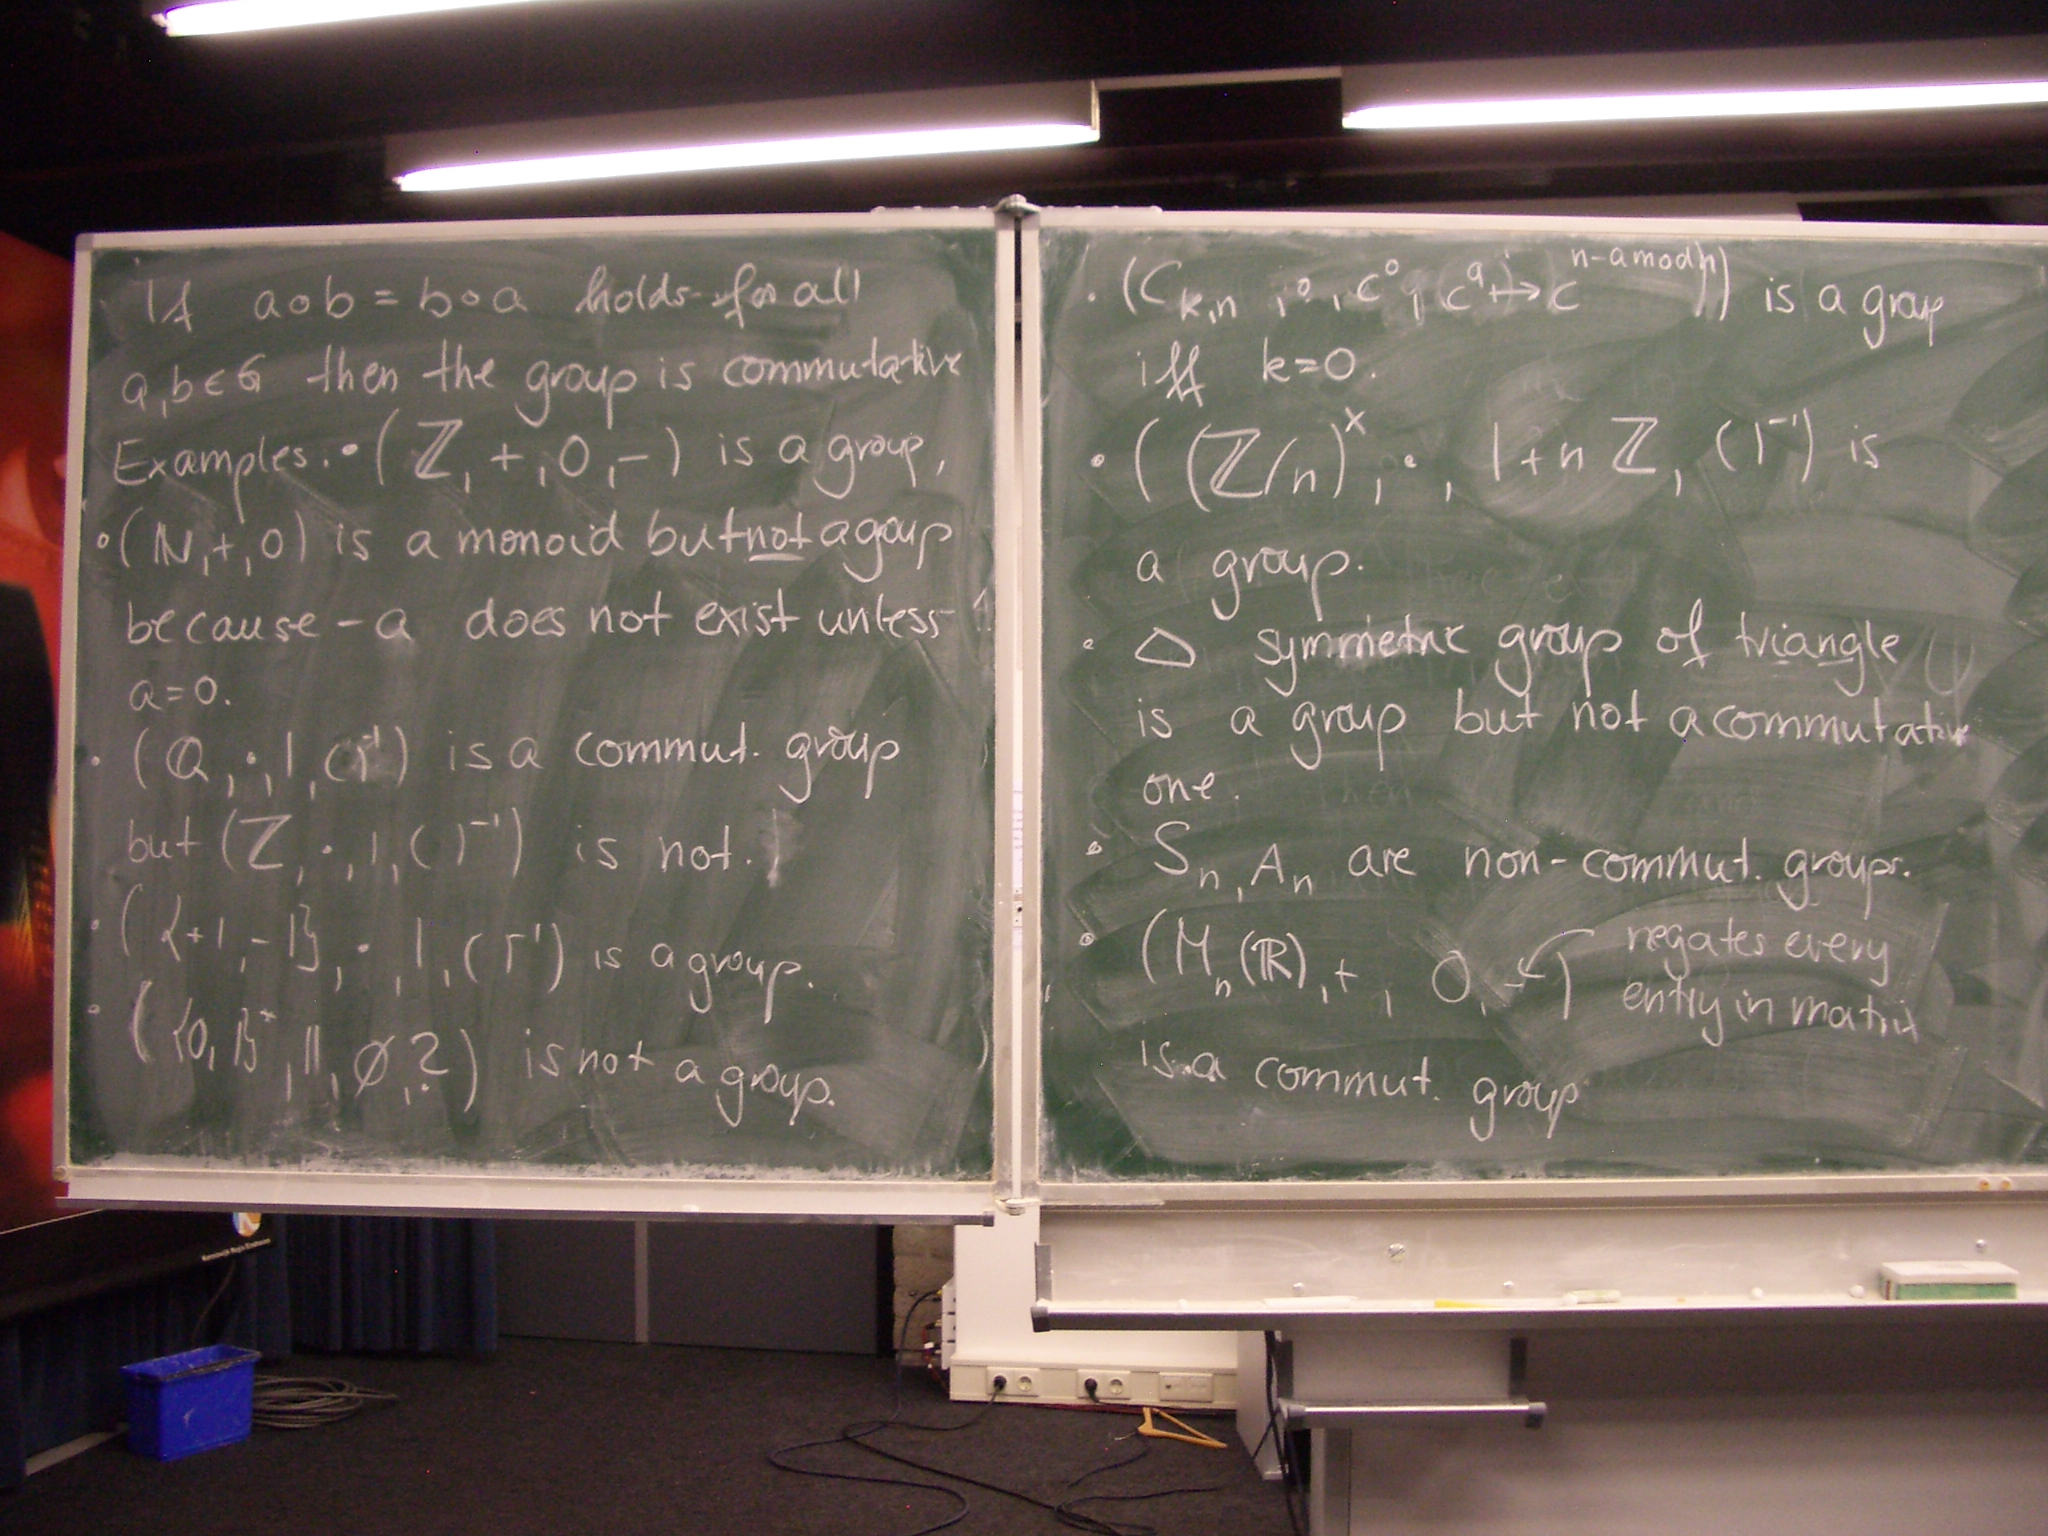 If a∘b = b∘a holds for all
a,b∈G then the group is commutative
Examples. • (ℤ, +, 0, −) is a group,
• (ℕ, +, 0) is a monoid but not a goup
because −a does not exist unless
a=0.
• (Q, ·, 1, ( )⁻¹) is a commut. group
but (ℤ, ·, 1, ( )⁻¹) is not.
• ({+1, −1}, ·, 1, ( )⁻¹) is a group.
• ({0, 1}*, ||, ∅, ?) is not a group.
• (C_{k,n}, ∘, c⁰, (cᵃ ↦ c^{n−a mod n})) is a group
iff k=0.
• ((ℤ/n)ˣ, ·, 1+nℤ, ( )⁻¹) is
a group.
• △ symmetric group of triangle
is a group but not a commutative
one.
• Sₙ, Aₙ are non-commut. groups.
• (Mₙ(ℝ), +, 0, −) negates every
entry in matrix
is a commut. group